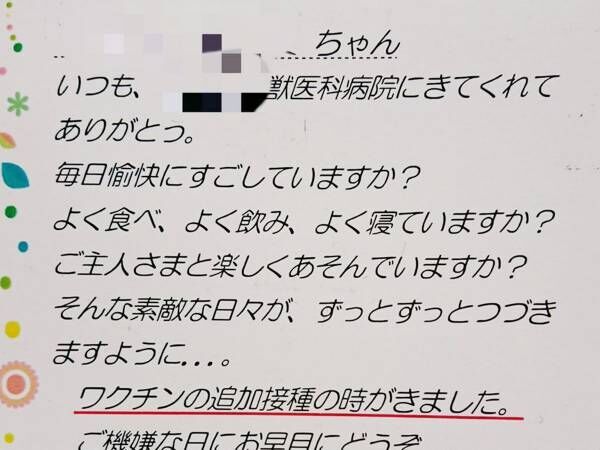 、ちゃん
いつも、獣医科病院にきてくれて
ありがとっ。
毎日愉快にすごしていますか？
よく食べ、よく飲み、よく寝ていますか？
ご主人さまと楽しくあそんでいますか？
そんな素敵な日々が、ずっとずっとつづき
ますように...。
ワクチンの追加接種の時がきました。
ご機嫌な日にお早目にどうぞ